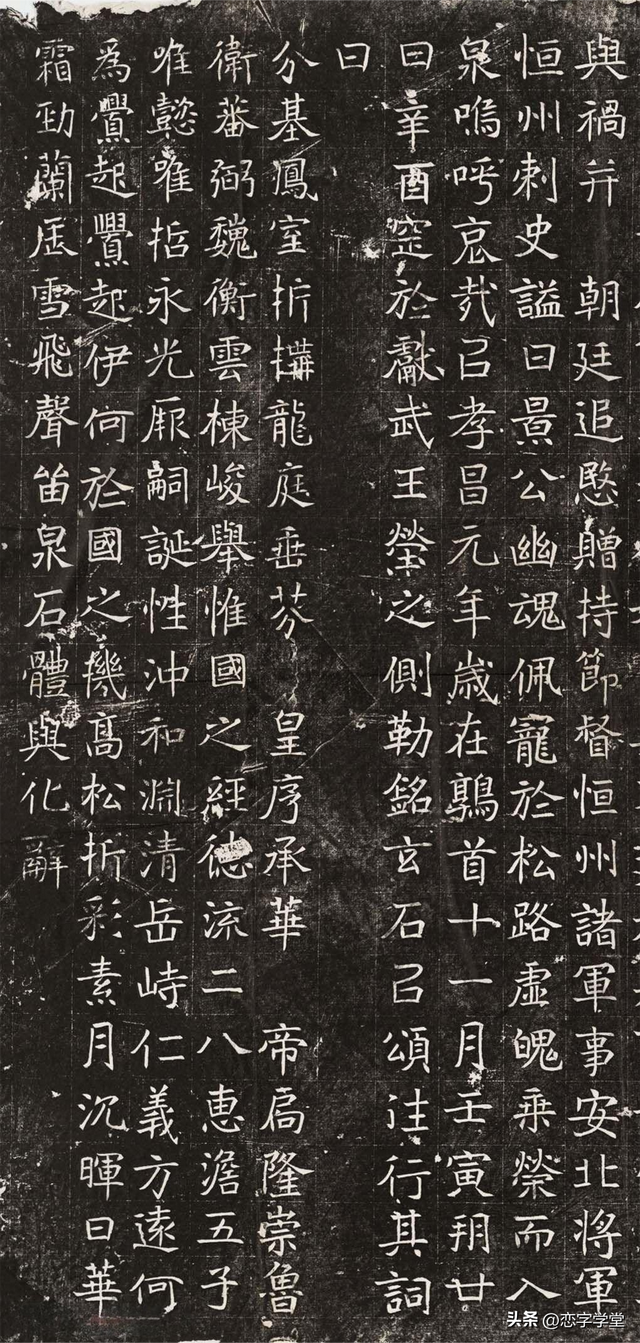 與禍并　朝廷追愍贈持節督恒州諸軍事安北將軍
恒州刺史謚曰景公幽魂佩寵於松路虛魄乘榮而入
泉嗚呼哀哉㠯孝昌元年歲在鶉首十一月壬寅朔廿
日辛酉窆於獻武王塋之側勒銘玄石㠯頌往行其詞
曰
分基鳳室折搆龍庭垂芬　皇序承華　帝扃隆崇魯
衛蕃弼魏衡雲棟峻舉惟國之經德流二八惠澹五子
唯懿唯哲永光厥嗣誕性沖和淵清岳峙仁義方遠何
為釁起釁起伊何於國之機高松折彩素月沉暉日華
霜勁蘭雪飛聲留泉石體與化辭
头条 @恋字学堂